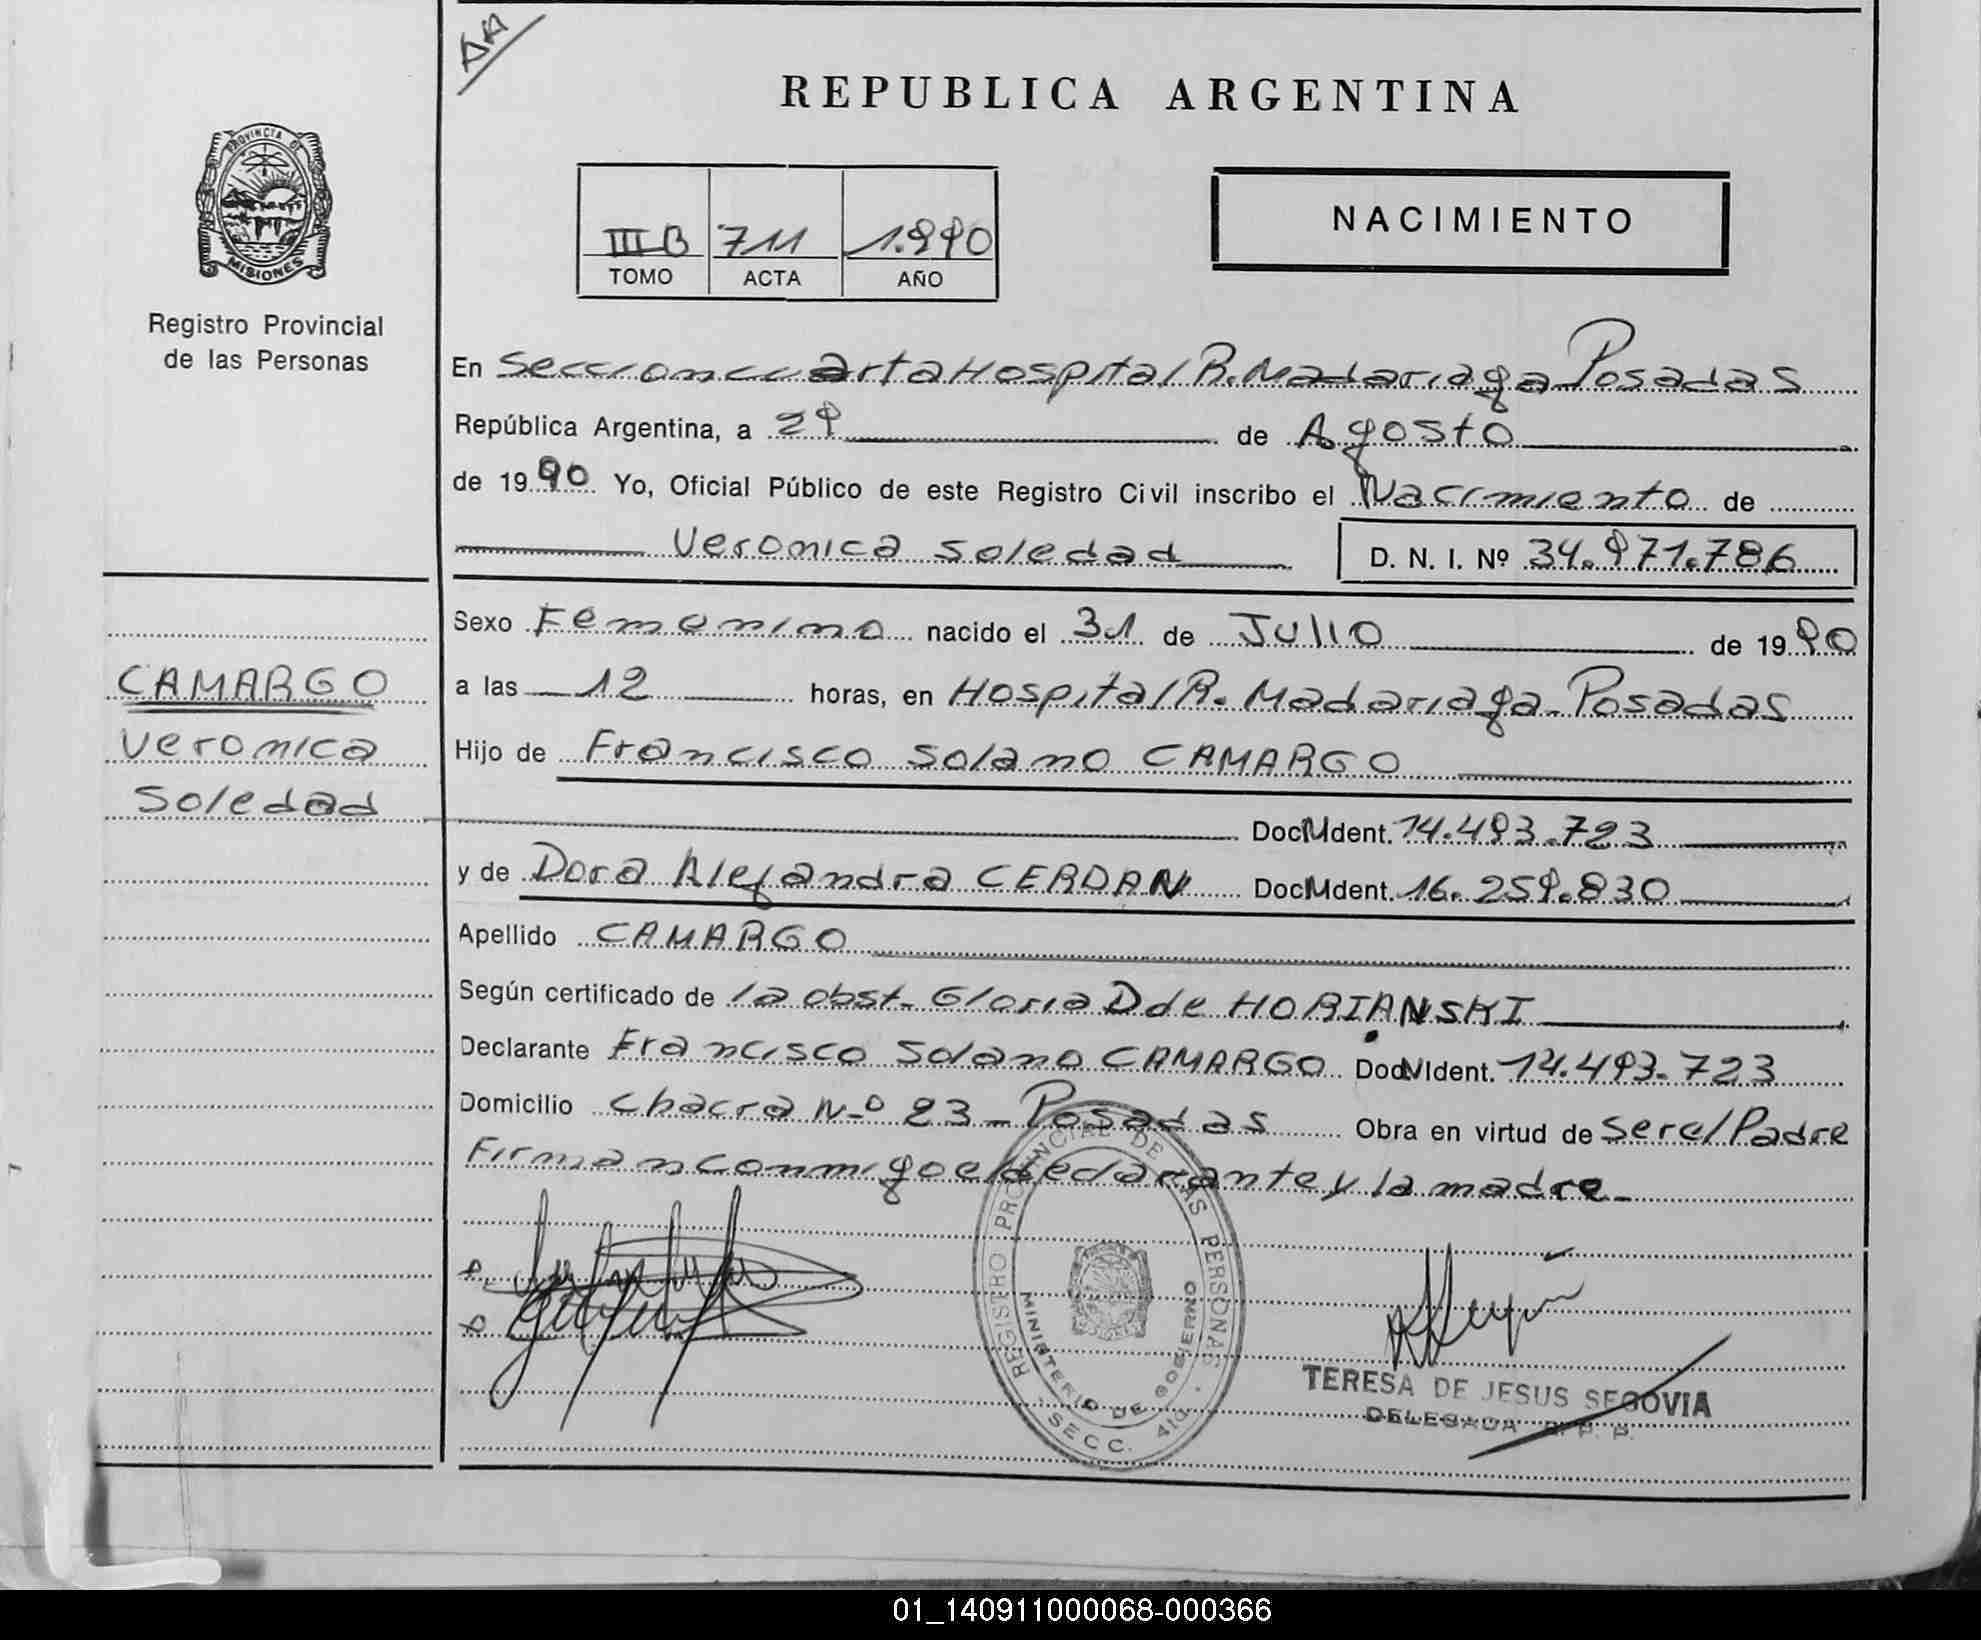 DA
REPUBLICA ARGENTINA
PROVINCIA DE
MISIONES
Registro Provincial
de las Personas
III B 711 1.990
TOMO ACTA AÑO
NACIMIENTO
En Seccion cuarta Hospital R. Madariaga Posadas
República Argentina, a 29 de Agosto
de 1990 Yo, Oficial Público de este Registro Civil inscribo el Nacimiento de
Veronica Soledad D. N. I. Nº 34.971.786
Sexo Femenino nacido el 31 de Julio de 1990
a las 12 horas, en Hospital R. Madariaga - Posadas
Hijo de Francisco Solano CAMARGO
Doc. Ident. 14.493.723
y de Dora Alejandra CERDAN Doc. Ident. 16.259.830
Apellido CAMARGO
Según certificado de la obst. Gloria D de HORIANSKI
Declarante Francisco Solano CAMARGO Doc. Ident. 14.493.723
Domicilio Chacra Nº 23 - Posadas Obra en virtud de Ser el Padre
Firman conmigo el declarante y la madre.-
CAMARGO
Veronica
Soledad
REGISTRO PROVINCIAL DE LAS PERSONAS
MINISTERIO DE GOBIERNO
SECC. 4ta.
TERESA DE JESUS SEGOVIA
DELEGADA R. P. P.
01_140911000068-000366